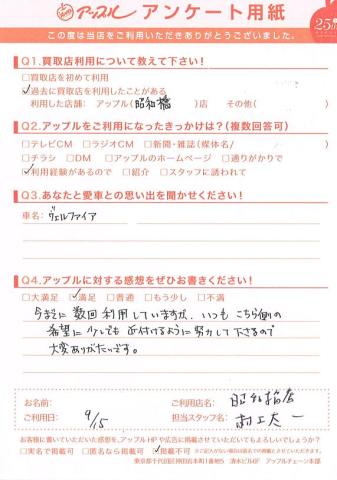 アップル アンケート用紙
25th
この度は当店をご利用いただきありがとうございました。
Q1.買取店利用について教えて下さい!
□買取店を初めて利用
☑過去に買取店を利用したことがある
利用した店舗: アップル(昭和橋)店 その他( )
Q2.アップルをご利用になったきっかけは?(複数回答可)
□テレビCM □ラジオCM □新聞・雑誌(媒体名/ )
□チラシ □DM □アップルのホームページ □通りがかりで
☑利用経験があるので □紹介 □スタッフに誘われて
Q3.あなたと愛車との思い出を聞かせください!
車名: ヴェルファイア
Q4.アップルに対する感想をぜひお書きください!
□大満足 ☑満足 □普通 □もう少し □不満
今までに数回利用していますが、いつもこちら側の
希望に少しでも近付けるように努力して下さるので
大変ありがたいです。
お名前: ご利用店名: 昭和橋店
ご利用日: 9/15 担当スタッフ名:
お客様に書いていただいた感想を、アップルHPや広告に掲載させていただいてもよろしいでしょうか?
□実名で掲載可 □匿名なら掲載可 ☑掲載不可 ※ご記入がない場合は匿名での掲載とさせていただきます。
東京都千代田区神田岩本町1番地5 清水ビル6F アップルチェーン本部